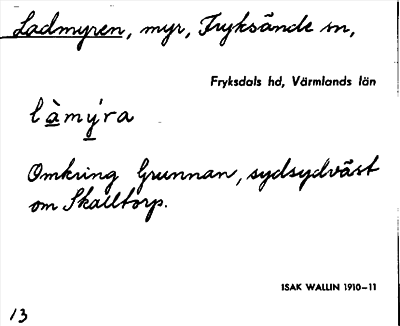 Ladmyren, myr, Fryksände sn,
Fryksdals hd, Värmlands län
làmýra
Omkring Grunnan, sydsydväst
om Skalltorp.
ISAK WALLIN 1910–11
13